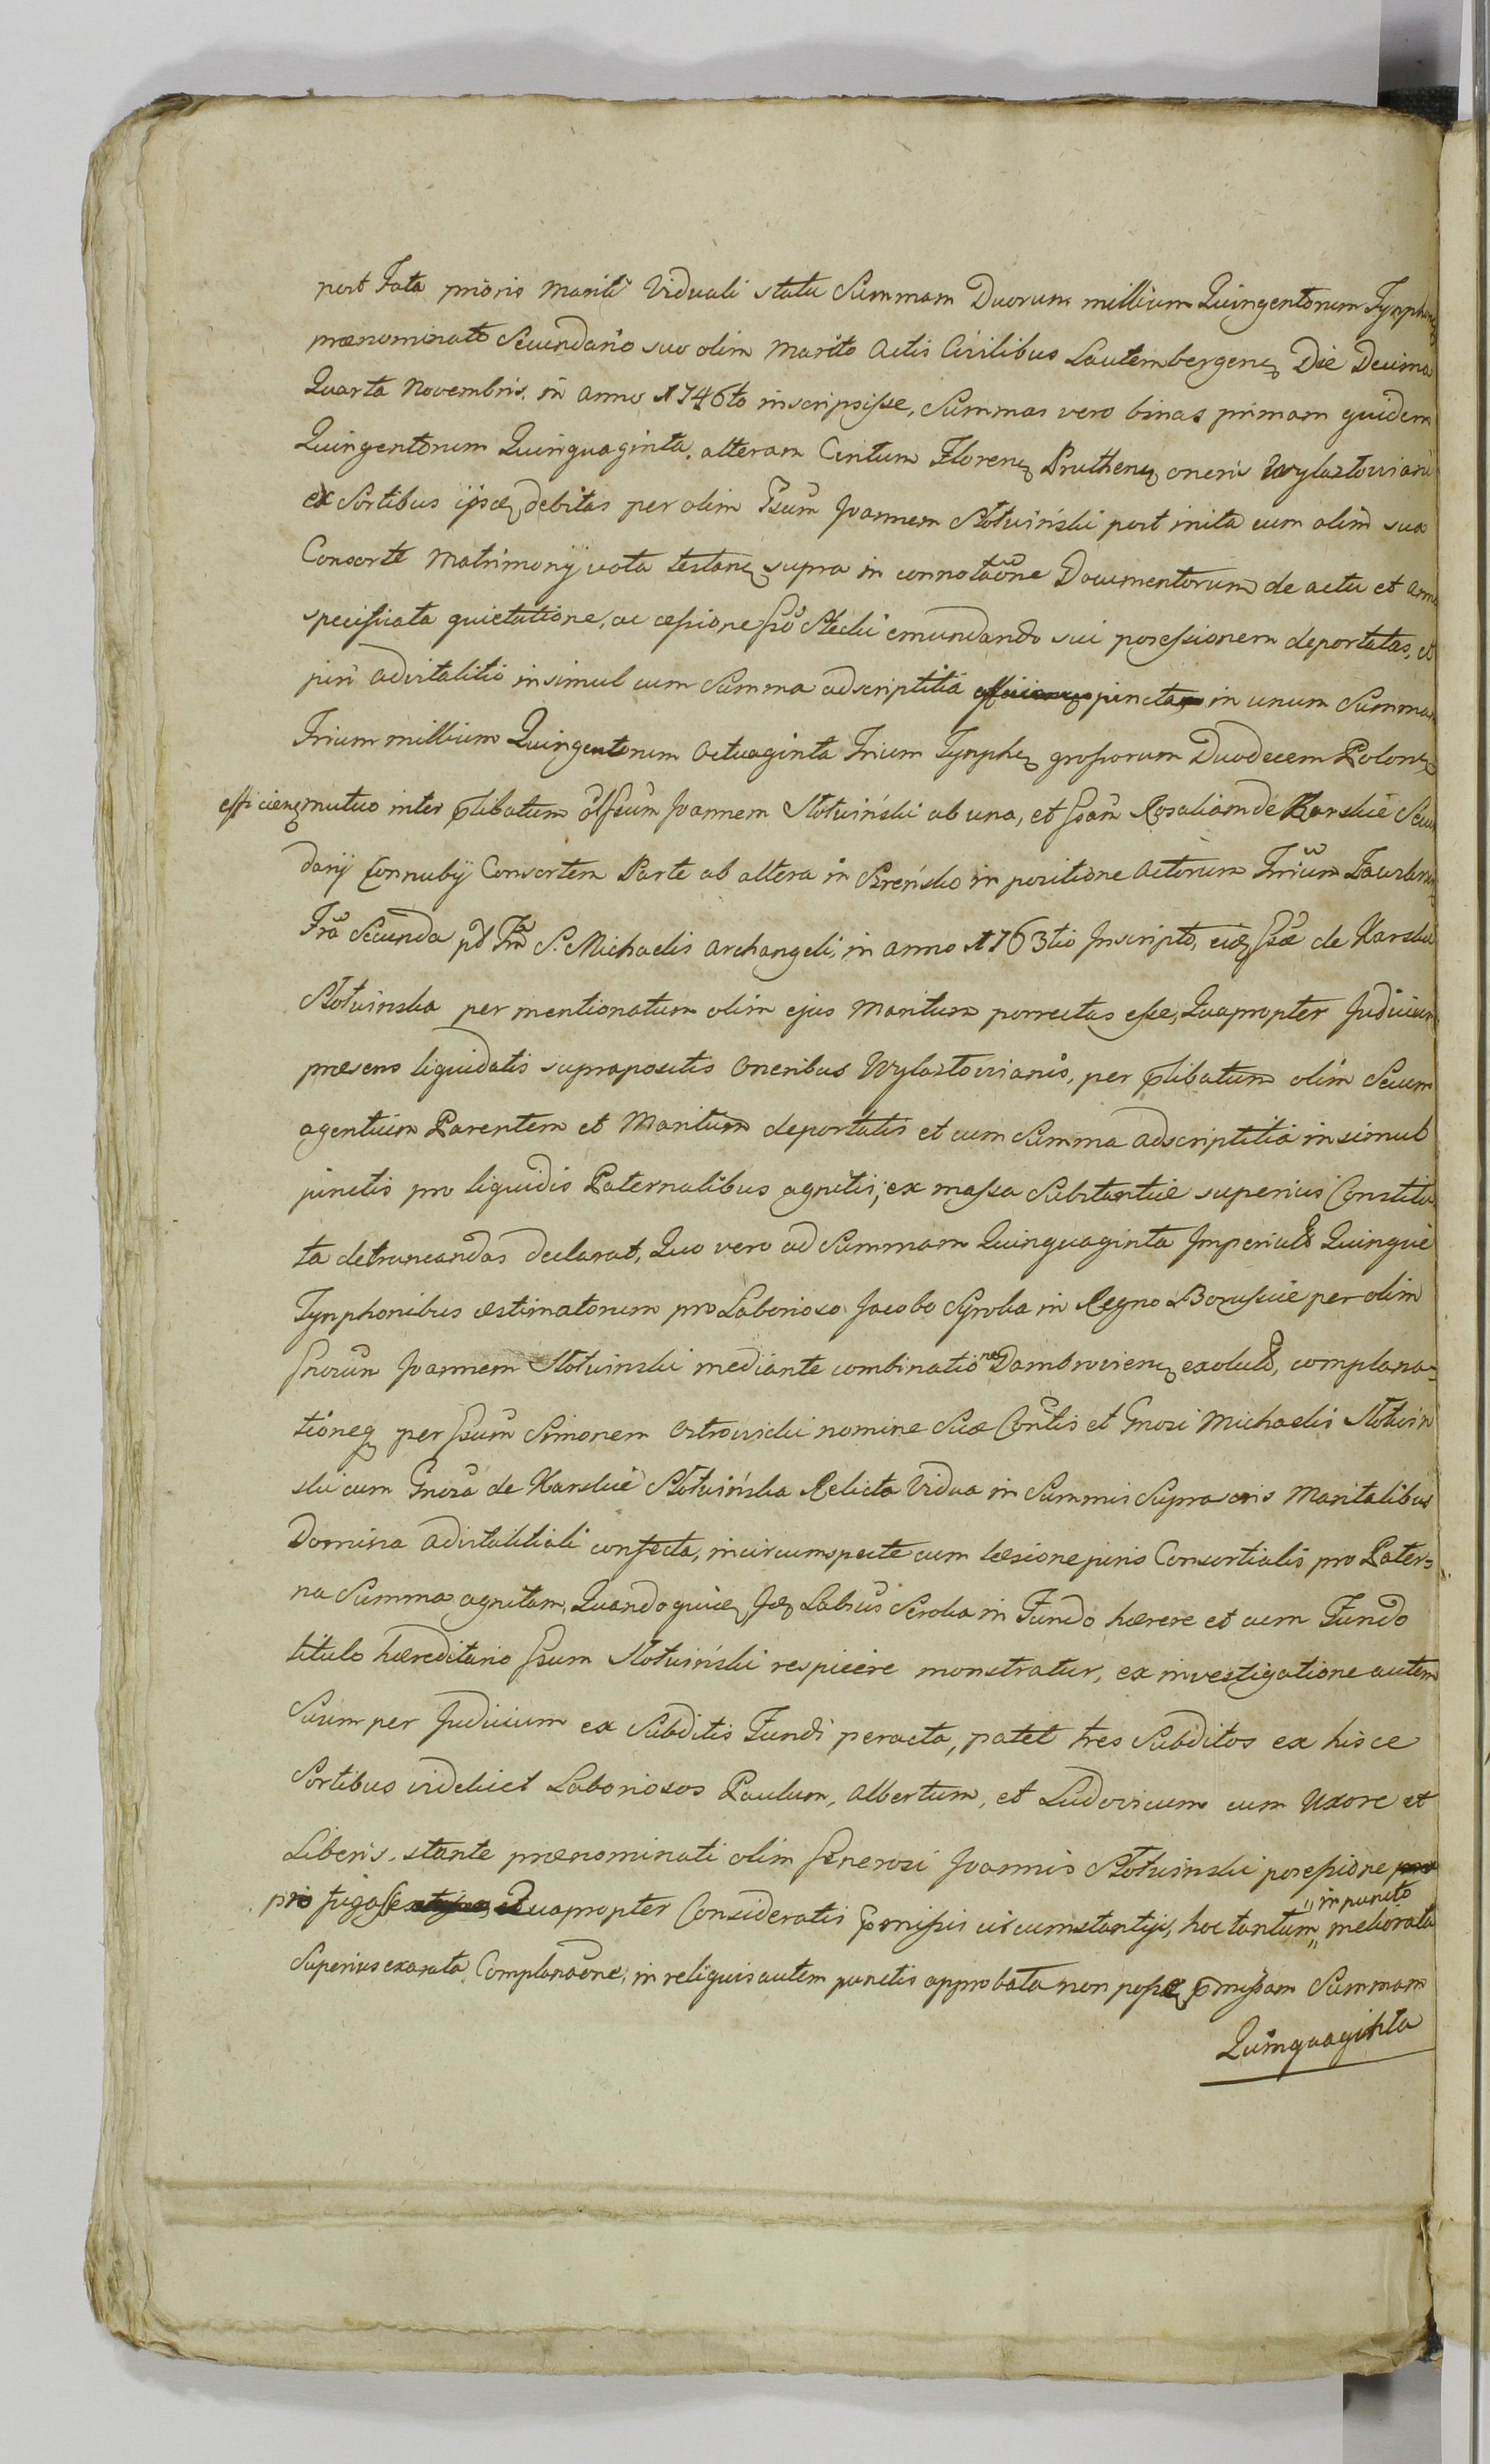 post Fata prioris Mariti Viduali statu Summam Duorum millium Quingentorum Tymphon
prænominato Secundario suo olim Marito Actis Civilibus Lautembergen Die Decima
Quarta Novembris in anno 1746to inscripsiſse, Summas vero binas primam quidem
Quingentorum Quinquaginta, alteram Centum Floren Pruthen oneri Wylaztoviani
ex Sortibus debitas per olim Gsum Joannem Słotwiński post inita cum olim sua
Consorte Matrimonij vota testan supra in connotaõne Documentorum de actu et anno
specificata quietatione, ac ceſsione emundando sui poſseſsionem deportatas, et
juri advitalitio insimul cum Summa adscriptitia juncta in unum Summam
Trium millium Quingentorum Octuaginta Trium Tymph groſsorum Duodecem Polon
efficien mutuo inter plibatum olim Gsum Joannem Słotwiński ab una, et Gsam Rosaliam de Karskie Secun
darij Connubij Consortem Parte ab altera in Szreńsko in positione Actorum Trium
Fra Secunda pt Fta S. Michaelis Archangeli, in anno 1763tio Inscripto, de Karskie
Słotwinska per mentionatum olim ejus Maritum porrectas eſse, Quapropter Judicium
præsens liquidatis suprapositis Oneribus Wylaztovianis, per plibatum olim Secum
agentium Parentem et Maritum deportatis et cum Summa adscriptitia insimul
junctis pro liquidis Paternalibus agnitis, ex maſsa Substantiæ superius Constitu
ta detruncandas declarat, Quo vero ad Summam Quinquaginta Imperial Quinque
Tymphonibus æstimatorum pro Laborioso Jacobo Sroka in Regno Boruſsiæ per olim
Gnosum Joannem Słotwinski mediante combinationē Dambrovien exolut, complana=
tioneq per Gsum Simonem Ostrowicki nomine Suæ Contis et Gnosi Michaelis Słotwin
ski cum Gnosa de Karskie Słotwińska Relicta Vidua in Summis Supra Maritalibus
Domina advitalitiali confecta, incircumspecte cum læsione juris Consortialis pro Pater=
na Summa agnitam, Quandoquidem Labsus Sroka in Fundo hærere et cum Fundo
titulo hæreditario Gsum Słotwiński respicere monstratur, ex investigatione autem
Suum per Judicium ex Subditis Fundi peracta, patet tres Subditos ex hisce
Sortibus videlicet Laboriosos Paulum, Albertum, et Ludovicum cum Uxore et
Liberis, stante prænominati olim Generosi Joannis Słotwinski poſseſsione
pro fugaſse Quapropter Consideratis pmiſsis circumstantijs, hoc tantum „ in puncto „ meliorata
Superius exarata Complanaõne, in reliquis autem punctis approbata non poſse, pmiſsam Summam
Quinquaginta